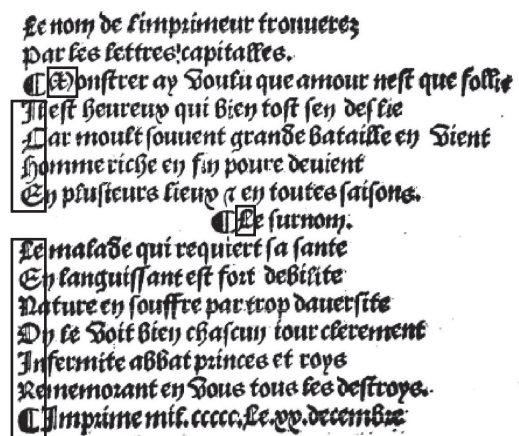 Le nom de limprimeur trouuerez
Par les lettres capitalles.
¶ Monstrer ay voulu que amour nest que follie
Il est heureux qui bien tost sen deslie
Car moult souuent grande bataille en vient
Homme riche en fin poure deuient
En plusieurs lieux ⁊ en toutes saisons.
¶ Le surnom.
Le malade qui requiert sa sante
En languissant est fort debilite
Nature en souffre par trop dauersite
On le voit bien chascun iour clerement
Infermite abbat princes et roys
Rememorant en vous tous les destroys.
¶ Imprime mil.ccccc.Le.xx.decembre